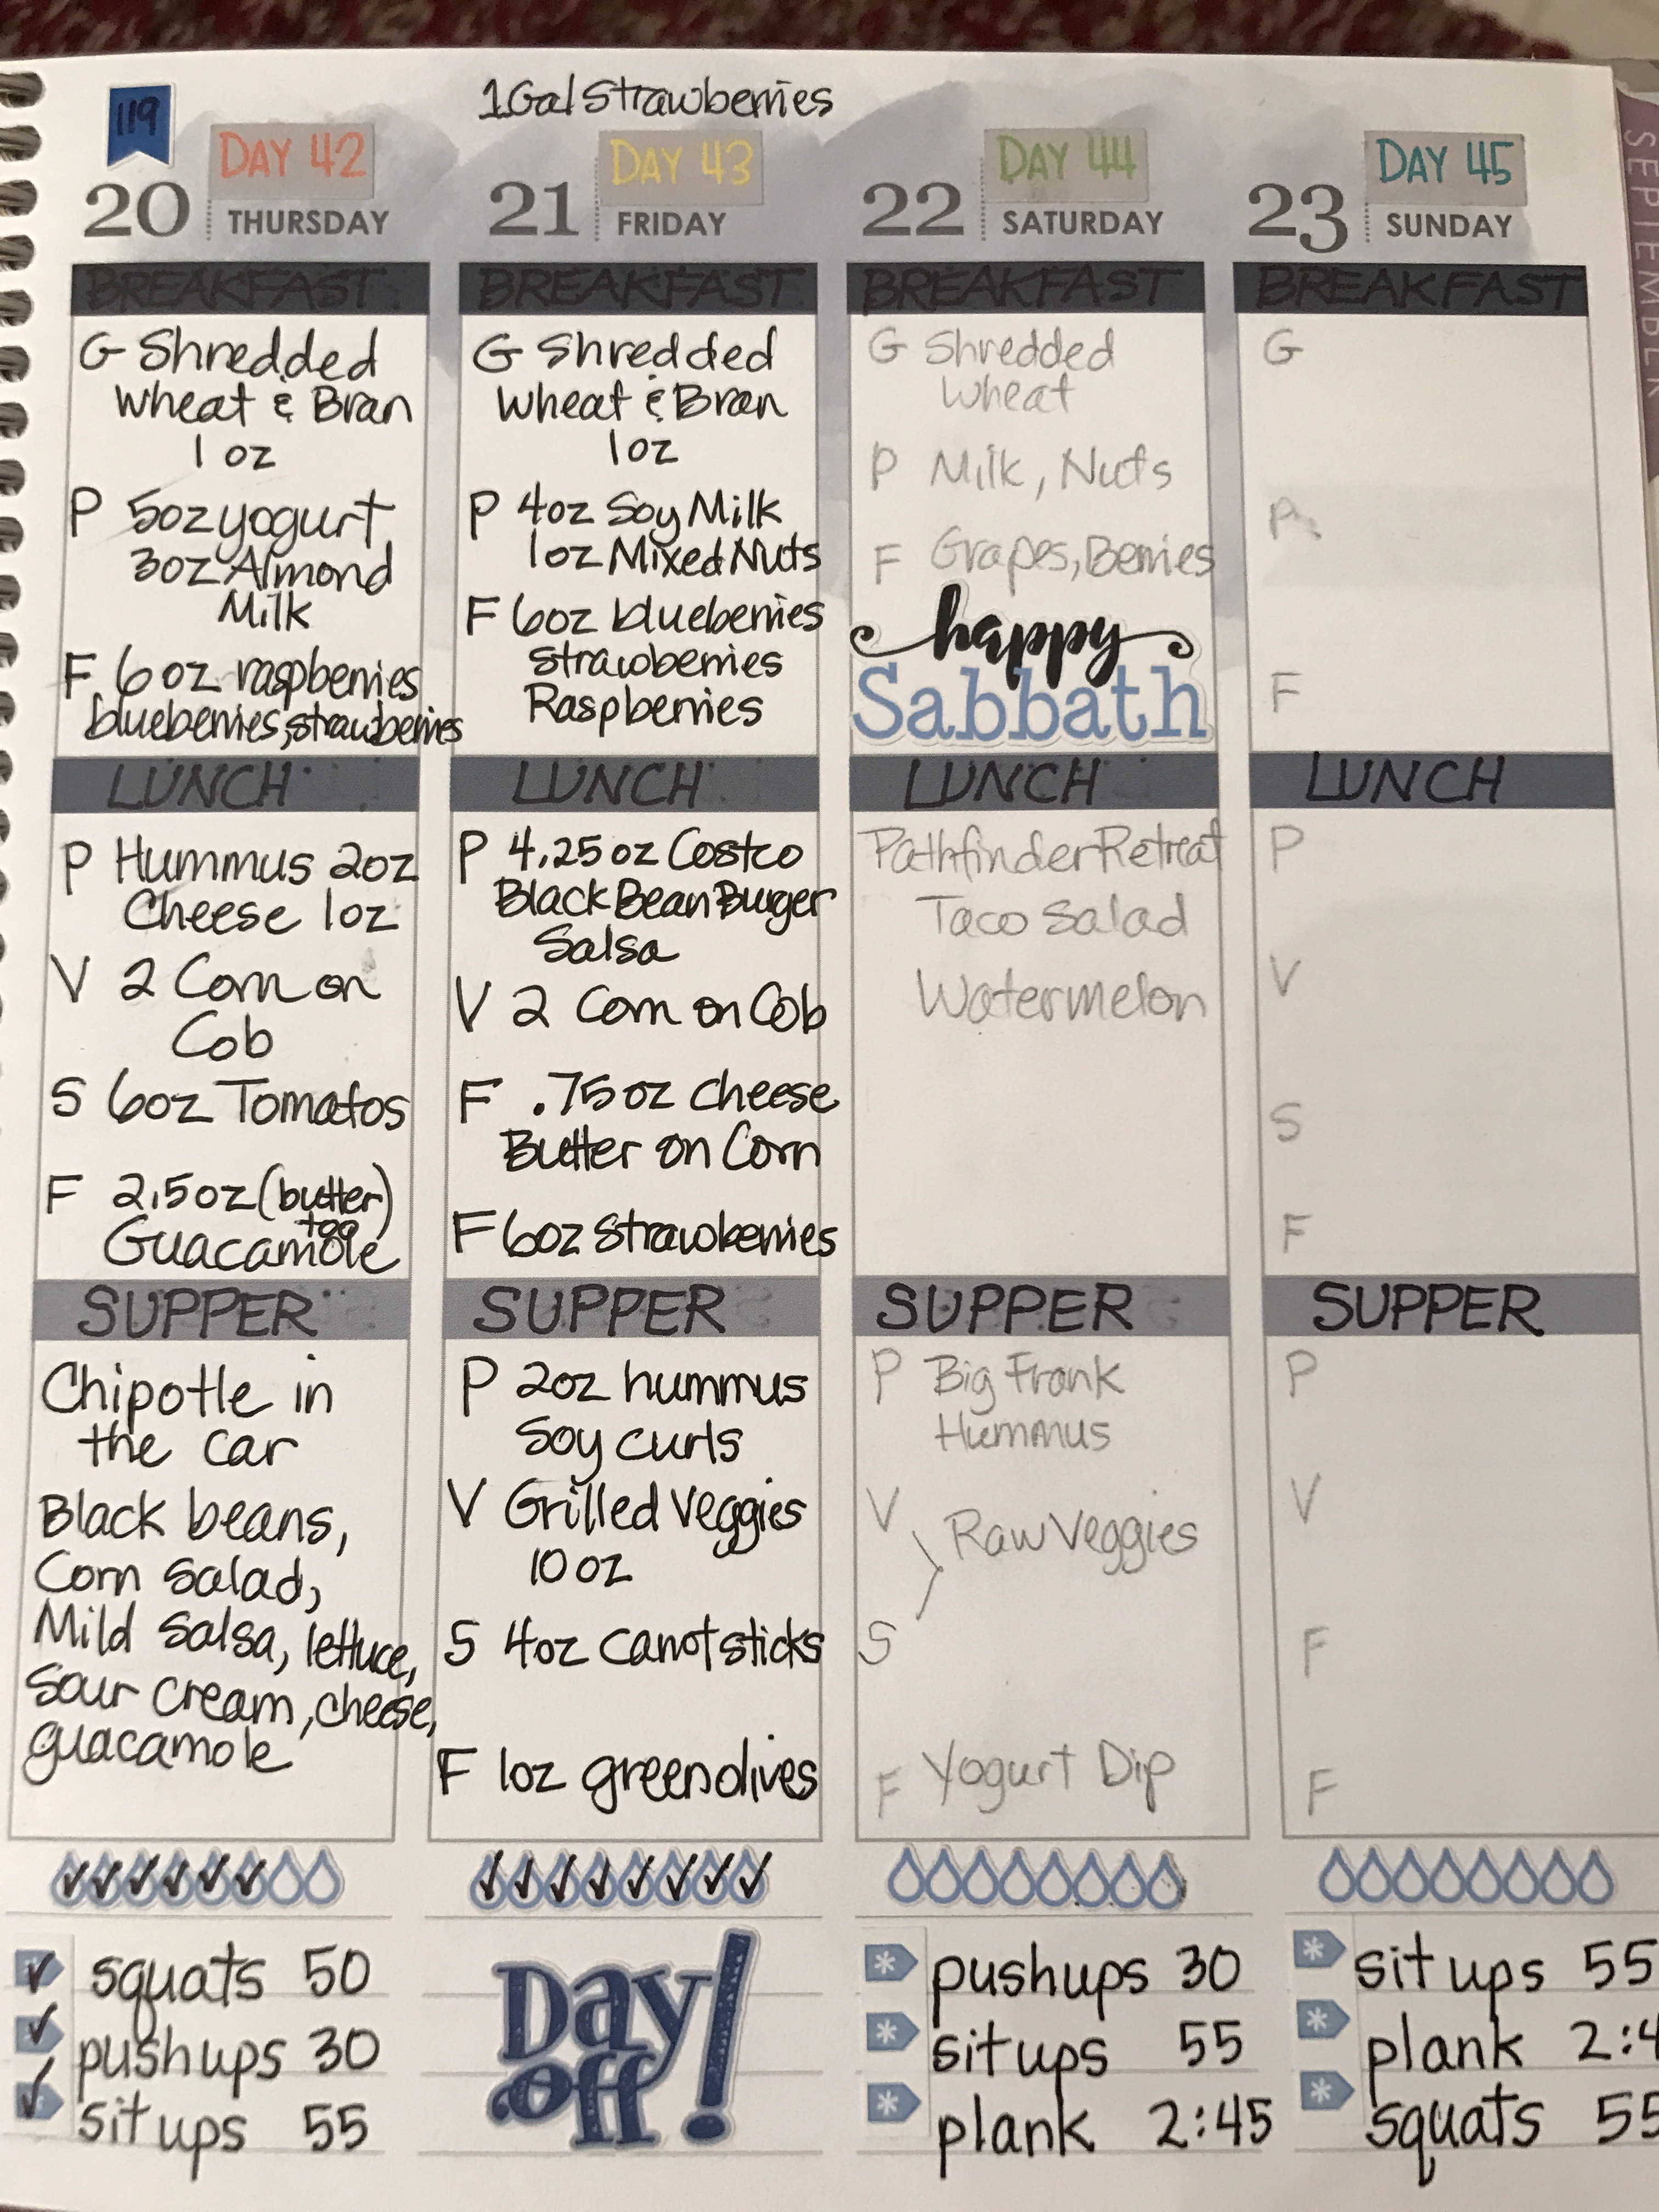 1 Gal Strawberries
119
DAY 42
20 THURSDAY
BREAKFAST
G Shredded
Wheat & Bran
1 oz
P 5oz yogurt
3oz Almond
Milk
F 6oz raspberries
blueberries, strawberries
LUNCH
P Hummus 2oz
Cheese 1oz
V 2 Corn on
Cob
S 6oz Tomatos
F 2.5oz (butter)
too
Guacamole
SUPPER
Chipotle in
the car
Black beans,
Corn Salad,
Mild Salsa, lettuce,
Sour cream, cheese,
guacamole
squats 50
pushups 30
sit ups 55
DAY 43
21 FRIDAY
BREAKFAST
G Shredded
Wheat & Bran
1oz
P 4oz Soy Milk
1oz Mixed Nuts
F 6oz blueberries
Strawberries
Raspberries
LUNCH
P 4.25oz Costco
Black Bean Burger
Salsa
V 2 Corn on Cob
F .75oz Cheese
Butter on Corn
F 6oz Strawberries
SUPPER
P 2oz hummus
Soy curls
V Grilled Veggies
10 oz
S 4oz carrot sticks
F 1oz green olives
Day
off!
DAY 44
22 SATURDAY
BREAKFAST
G Shredded
Wheat
P Milk, Nuts
F Grapes, Berries
happy
Sabbath
LUNCH
Pathfinder Retreat
Taco Salad
Watermelon
SUPPER
P Big Frank
Hummus
V
Raw Veggies
S
F Yogurt Dip
pushups 30
sit ups 55
plank 2:45
DAY 45
23 SUNDAY
BREAKFAST
G
P
F
LUNCH
P
V
S
F
SUPPER
P
V
F
F
sit ups 55
plank 2:4
squats 55
SEPTEMBER